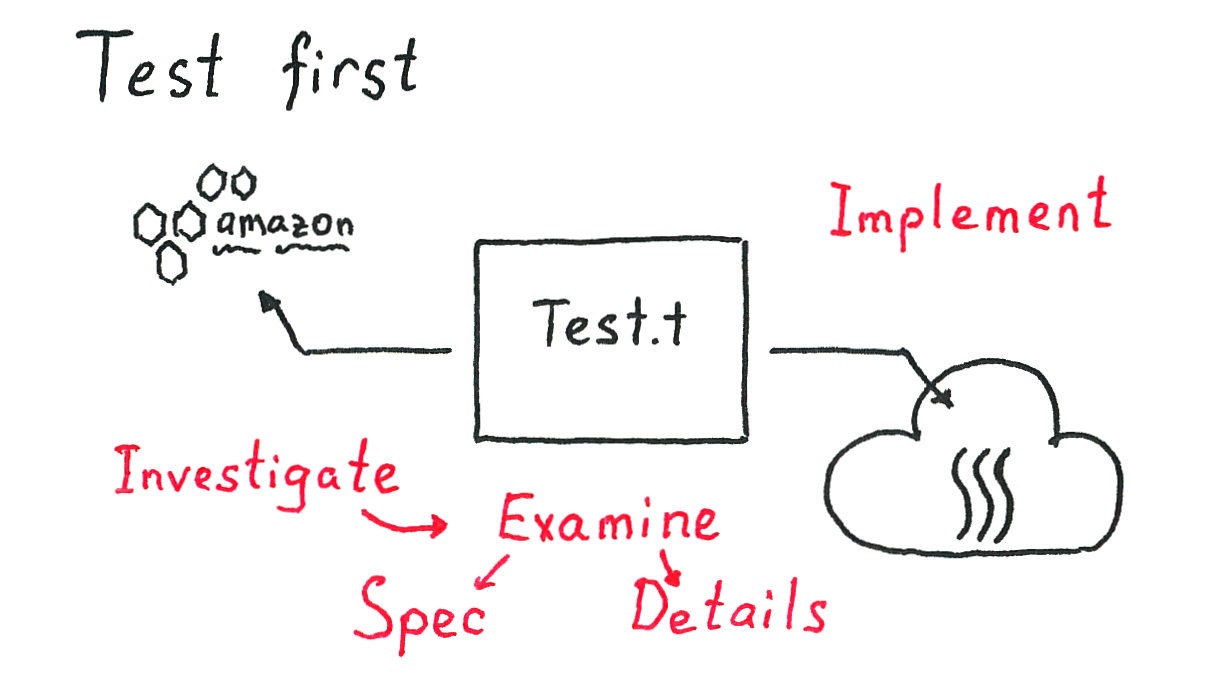 Test first
amazon
Implement
Test.t
Investigate
Examine
Spec
Details